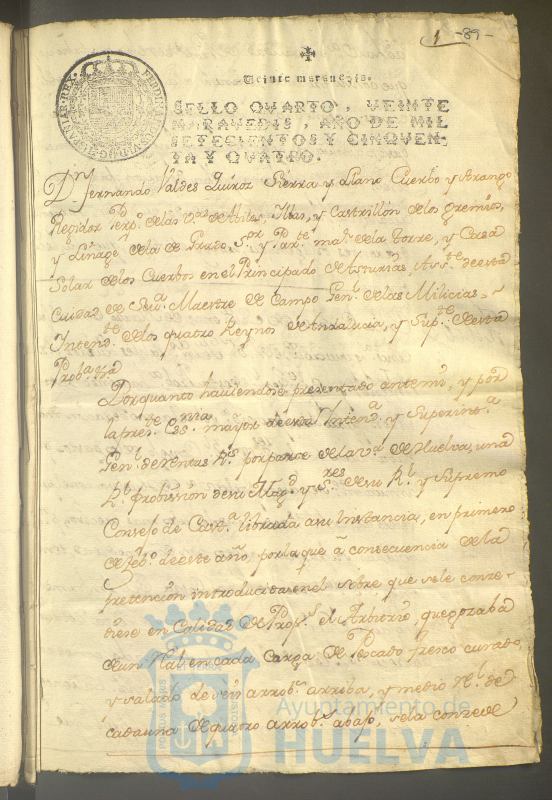 1 -89-
Veinte maravedis.
SELLO QVARTO, VEINTE
MARAVEDIS, AÑO DE MIL
SETECIENTOS Y CINQVEN-
TA Y QVATRO.
Dn Fernando Valdes Quiroz Sierra y Llano Cuerbo y Arango
Regidor Perpo. delas Vas de Abiles, Illas, y Castrillon de los Gremios,
y Linage dela de Grado, Sor y Parte mar. dela Torre, y Casa
Solar delos Cuerbos en el Principado de Asturias Aste. de esta
Ciudad de Seva. Maestre de Campo Genl. delas Milicias
Intende. delos quatro Reynos de Andaluzia, y Supte. de esta
Proba
Por quanto haviendose presentado antemi, y por
la preste. Essnia mayor de esta Intenda. y Superinta.
Genl. de Rentas Rs por parte dela Va. de Huelva, una
Rl. probission de su Magd. y Sres de su Rl. y Supremo
Consejo de Casta. librada a su Instancia, en primero
de febo. de este año, por la que â consecuencia de la
pretencion introducida en el sobre que sele conze-
diese en Calidad de Propos. el Arbitrio, que gozaba
de un Rl. en cada Carga de Pescado fresco curado
y salado de seis arrobs. arriba, y medio Rl. de
cada una de quatro arrobs. abajo, sela conzede
Ayuntamiento de
HUELVA